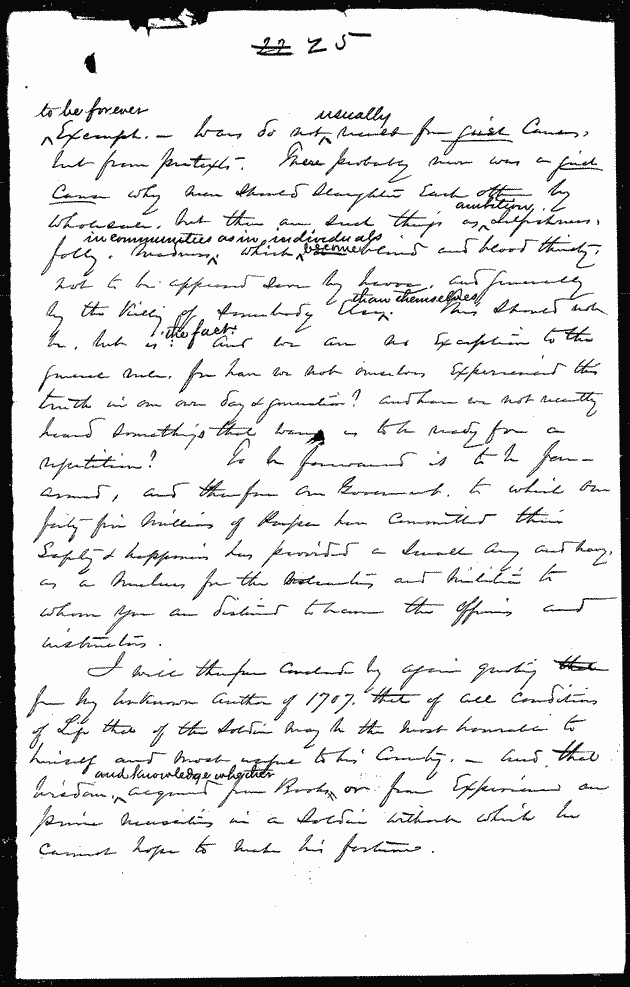 22 25
to be forever
Exempt. — Wars do not usually result from just Causes,
but from pretexts. There probably never was a just
Cause why men should slaughter Each other by
wholesale, but there are such things as ambition, selfishness,
folly, madness, in communities as in individuals which become blind and blood thirsty,
not to be appeased save by havoc, and generally
by the killing of somebody else than themselves. This should not
be, but is the fact. And we are no Exception to the
general rule, for have we not ourselves Experienced this
truth in our own day & generation? and have we not recently
heard somethings that warns us to be ready for a
repetition? To be forewarned is to be fore-
armed, and therefore our Government, to which our
forty five Millions of People have Committed their
Safety & happiness has provided a Small Army and Navy,
as a Nucleus for the Volunteers and Militia to
whom you are destined to become the Officers and
instructors.
I will therefore Conclude by again quoting that
from my unknown author of 1707. that of all Conditions
of Life that of the Soldier may be the most honorable to
himself and most useful to his Country. — And that
Wisdom, and knowledge whether acquired from Books, or from Experience are
prime necessities in a Soldier without which he
cannot hope to make his fortune.